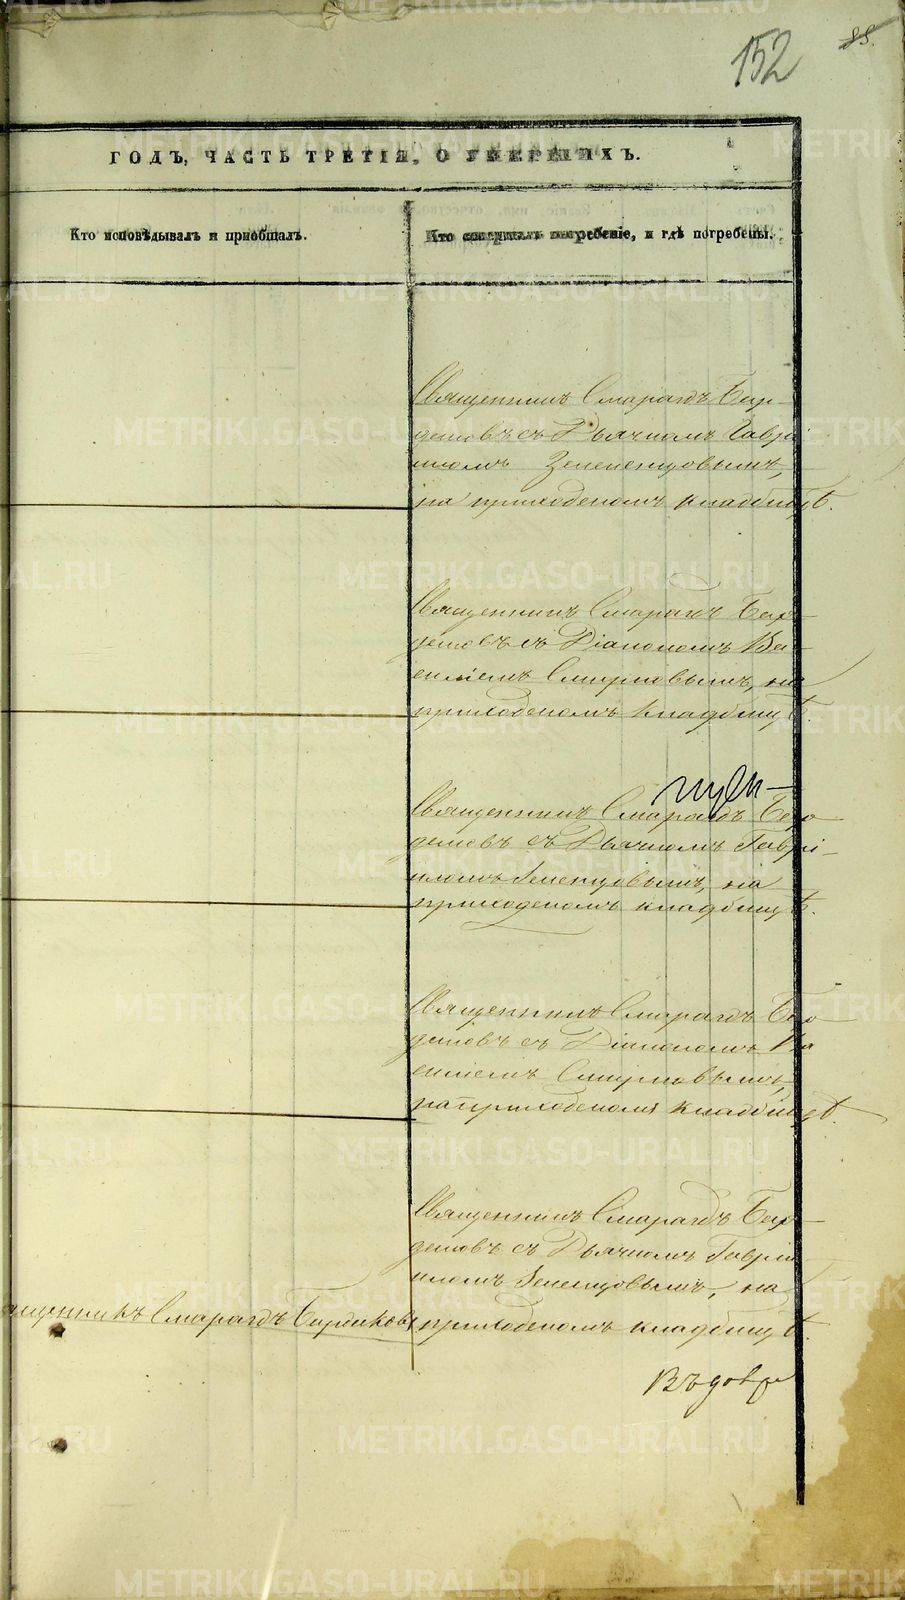 152
85.
ГОДЪ, ЧАСТЬ ТРЕТІЯ, О УМЕРШИХЪ.
Кто исповѣдывалъ и пріобщалъ.
Кто совершалъ погребеніе, и гдѣ погребены.
Священникъ Смарагдъ Бир-
дековъ съ Дьячкомъ Гаврі-
иломъ
на приходскомъ кладбищѣ.
Священникъ Смарагдъ Бир-
дековъ съ Діакономъ Ва-
силіемъ Смирновымъ, на
приходскомъ кладбищѣ.
Священникъ Смарагдъ Бир-
дековъ съ Дьячкомъ Гаврі-
иломъ на
приходскомъ кладбищѣ.
Священникъ Смарагдъ Бир-
дековъ съ Діакономъ Ва-
силіемъ Смирновымъ,
на приходскомъ кладбищѣ.
Священникъ Смарагдъ Бир-
дековъ съ Дьячкомъ Гаврі-
иломъ на
приходскомъ кладбищѣ.
ященникъ Смарагдъ Бирдековъ
METRIKI.GASO-URAL.RU